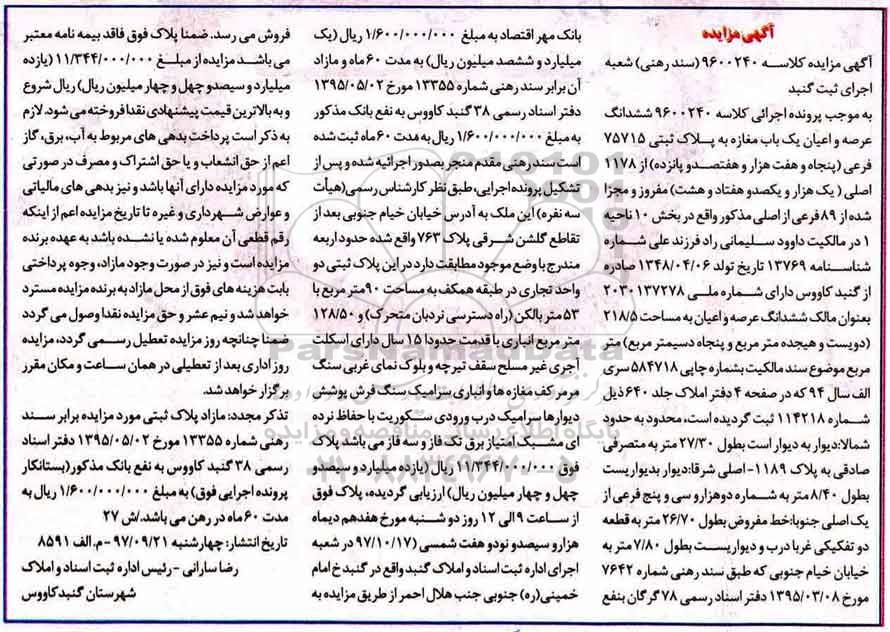 آگهی مزایده
آگهی مزایده کلاسه ۹۶۰۰۲۴۰ (سند رهنی) شعبه
اجرای ثبت گنبد
به موجب پرونده اجرائی کلاسه ۹۶۰۰۲۴۰ ششدانگ
عرصه و اعیان یک باب مغازه به پلاک ثبتی ۷۵۷۱۵
فرعی (پنجاه و هفت هزار و هفتصدو پانزده) از ۱۱۷۸
اصلی ( یک هزار و یکصدو هفتاد و هشت) مفروز و مجزا
شده از ۸۹ فرعی از اصلی مذکور واقع در بخش ۱۰ ناحیه
۱ در مالکیت داوود سلیمانی راد فرزند علی شماره
شناسنامه ۱۳۷۶۹ تاریخ تولد ۱۳۴۸/۰۴/۰۶ صادره
از گنبد کاووس دارای شماره ملی ۲۰۳۰۱۳۷۲۷۸
بعنوان مالک ششدانگ عرصه و اعیان به مساحت ۲۱۸/۵
(دویست و هیجده متر مربع و پنجاه دسیمتر مربع) متر
مربع موضوع سند مالکیت بشماره چاپی ۵۸۴۷۱۸ سری
الف سال ۹۴ که در صفحه ۴ دفتر املاک جلد ۶۴۰ ذیل
شماره ۱۱۴۲۱۸ ثبت گردیده است، محدود به حدود
شمالا: دیوار به دیوار است بطول ۲۷/۳۰ متر به متصرفی
صادقی به پلاک ۱۱۸۹- اصلی شرقا: دیوار بدیواریست
بطول ۸/۴۰ متر به شماره دوهزارو سی و پنج فرعی از
یک اصلی جنوبا: خط مفروض بطول ۲۶/۷۰ متر به قطعه
دو تفکیکی غربا درب و دیواریست بطول ۷/۸۰ متر به
خیابان خیام جنوبی که طبق سند رهنی شماره ۷۶۴۲
مورخ ۱۳۹۵/۰۳/۰۸ دفتر اسناد رسمی ۷۸ گرگان بنفع
بانک مهر اقتصاد به مبلغ ۱/۶۰۰/۰۰۰/۰۰۰ ریال (یک
میلیارد و ششصد میلیون ریال) به مدت ۶۰ ماه و مازاد
آن برابر سند رهنی شماره ۱۳۳۵۵ مورخ ۱۳۹۵/۰۵/۰۲
دفتر اسناد رسمی ۳۸ گنبد کاووس به نفع بانک مذکور
به مبلغ ۱/۶۰۰/۰۰۰/۰۰۰ ریال به مدت ۶۰ ماه ثبت شده
است سند رهنی مقدم منجر بصدور اجرائیه شده و پس از
تشکیل پرونده اجرایی، طبق نظر کارشناس رسمی (هیأت
سه نفره) این ملک به آدرس خیابان خیام جنوبی بعد از
تقاطع گلشن شرقی پلاک ۷۶۳ واقع شده حدود اربعه
مندرج با وضع موجود مطابقت دارد در این پلاک ثبتی دو
واحد تجاری در طبقه همکف به مساحت ۹۰ متر مربع با
۵۳ متر بالکن (راه دسترسی نردبان متحرک) و ۱۲۸/۵۰
متر مربع انباری با قدمت حدودا ۱۵ سال دارای اسکلت
آجری غیر مسلح سقف تیرچه و بلوک نمای غربی سنگ
مرمر کف مغازه ها و انباری سرامیک سنگ فرش پوشش
دیوارها سرامیک درب ورودی سکوریت با حفاظ نرده
ای مشبک امتیاز برق تک فاز و سه فاز می باشد پلاک
فوق ۱۱/۳۴۴/۰۰۰/۰۰۰ ریال (یازده میلیارد و سیصدو
چهل و چهار میلیون ریال) ارزیابی گردیده، پلاک فوق
از ساعت ۹ الی ۱۲ روز دو شنبه مورخ هفدهم دیماه
هزارو سیصدو نودو هفت شمسی (۹۷/۱۰/۱۷) در شعبه
اجرای اداره ثبت اسناد و املاک گنبد واقع در گنبد خ امام
خمینی(ره) جنوبی جنب هلال احمر از طریق مزایده به
فروش می رسد. ضمنا پلاک فوق فاقد بیمه نامه معتبر
می باشد مزایده از مبلغ ۱۱/۳۴۴/۰۰۰/۰۰۰ (یازده
میلیارد و سیصدو چهل و چهار میلیون ریال) ریال شروع
و به بالاترین قیمت پیشنهادی نقدا فروخته می شود. لازم
به ذکر است پرداخت بدهی های مربوط به آب، برق، گاز
اعم از حق انشعاب و یا حق اشتراک و مصرف در صورتی
که مورد مزایده دارای آنها باشد و نیز بدهی های مالیاتی
و عوارض شهرداری و غیره تا تاریخ مزایده اعم از اینکه
رقم قطعی آن معلوم شده یا نشده باشد به عهده برنده
مزایده است و نیز در صورت وجود مازاد، وجوه پرداختی
بابت هزینه های فوق از محل مازاد به برنده مزایده مسترد
خواهد شد و نیم عشر و حق مزایده نقدا وصول می گردد
ضمنا چنانچه روز مزایده تعطیل رسمی گردد، مزایده
روز اداری بعد از تعطیلی در همان ساعت و مکان مقرر
برگزار خواهد شد.
تذکر مجدد: مازاد پلاک ثبتی مورد مزایده برابر سند
رهنی شماره ۱۳۳۵۵ مورخ ۱۳۹۵/۰۵/۰۲ دفتر اسناد
رسمی ۳۸ گنبد کاووس به نفع بانک مذکور (بستانکار
پرونده اجرایی فوق) به مبلغ ۱/۶۰۰/۰۰۰/۰۰۰ ریال به
مدت ۶۰ ماه در رهن می باشد./ش ۲۷
تاریخ انتشار: چهارشنبه ۹۷/۰۹/۲۱ -م.الف ۸۵۹۱
رضا سارانی -رئیس اداره ثبت اسناد و املاک
شهرستان گنبدکاووس
ParsNamadData
پایگاه اطلاع رسانی مناقصه و مزایده
۰۲۱-۸۸۳۴۹۶۷۰-۵